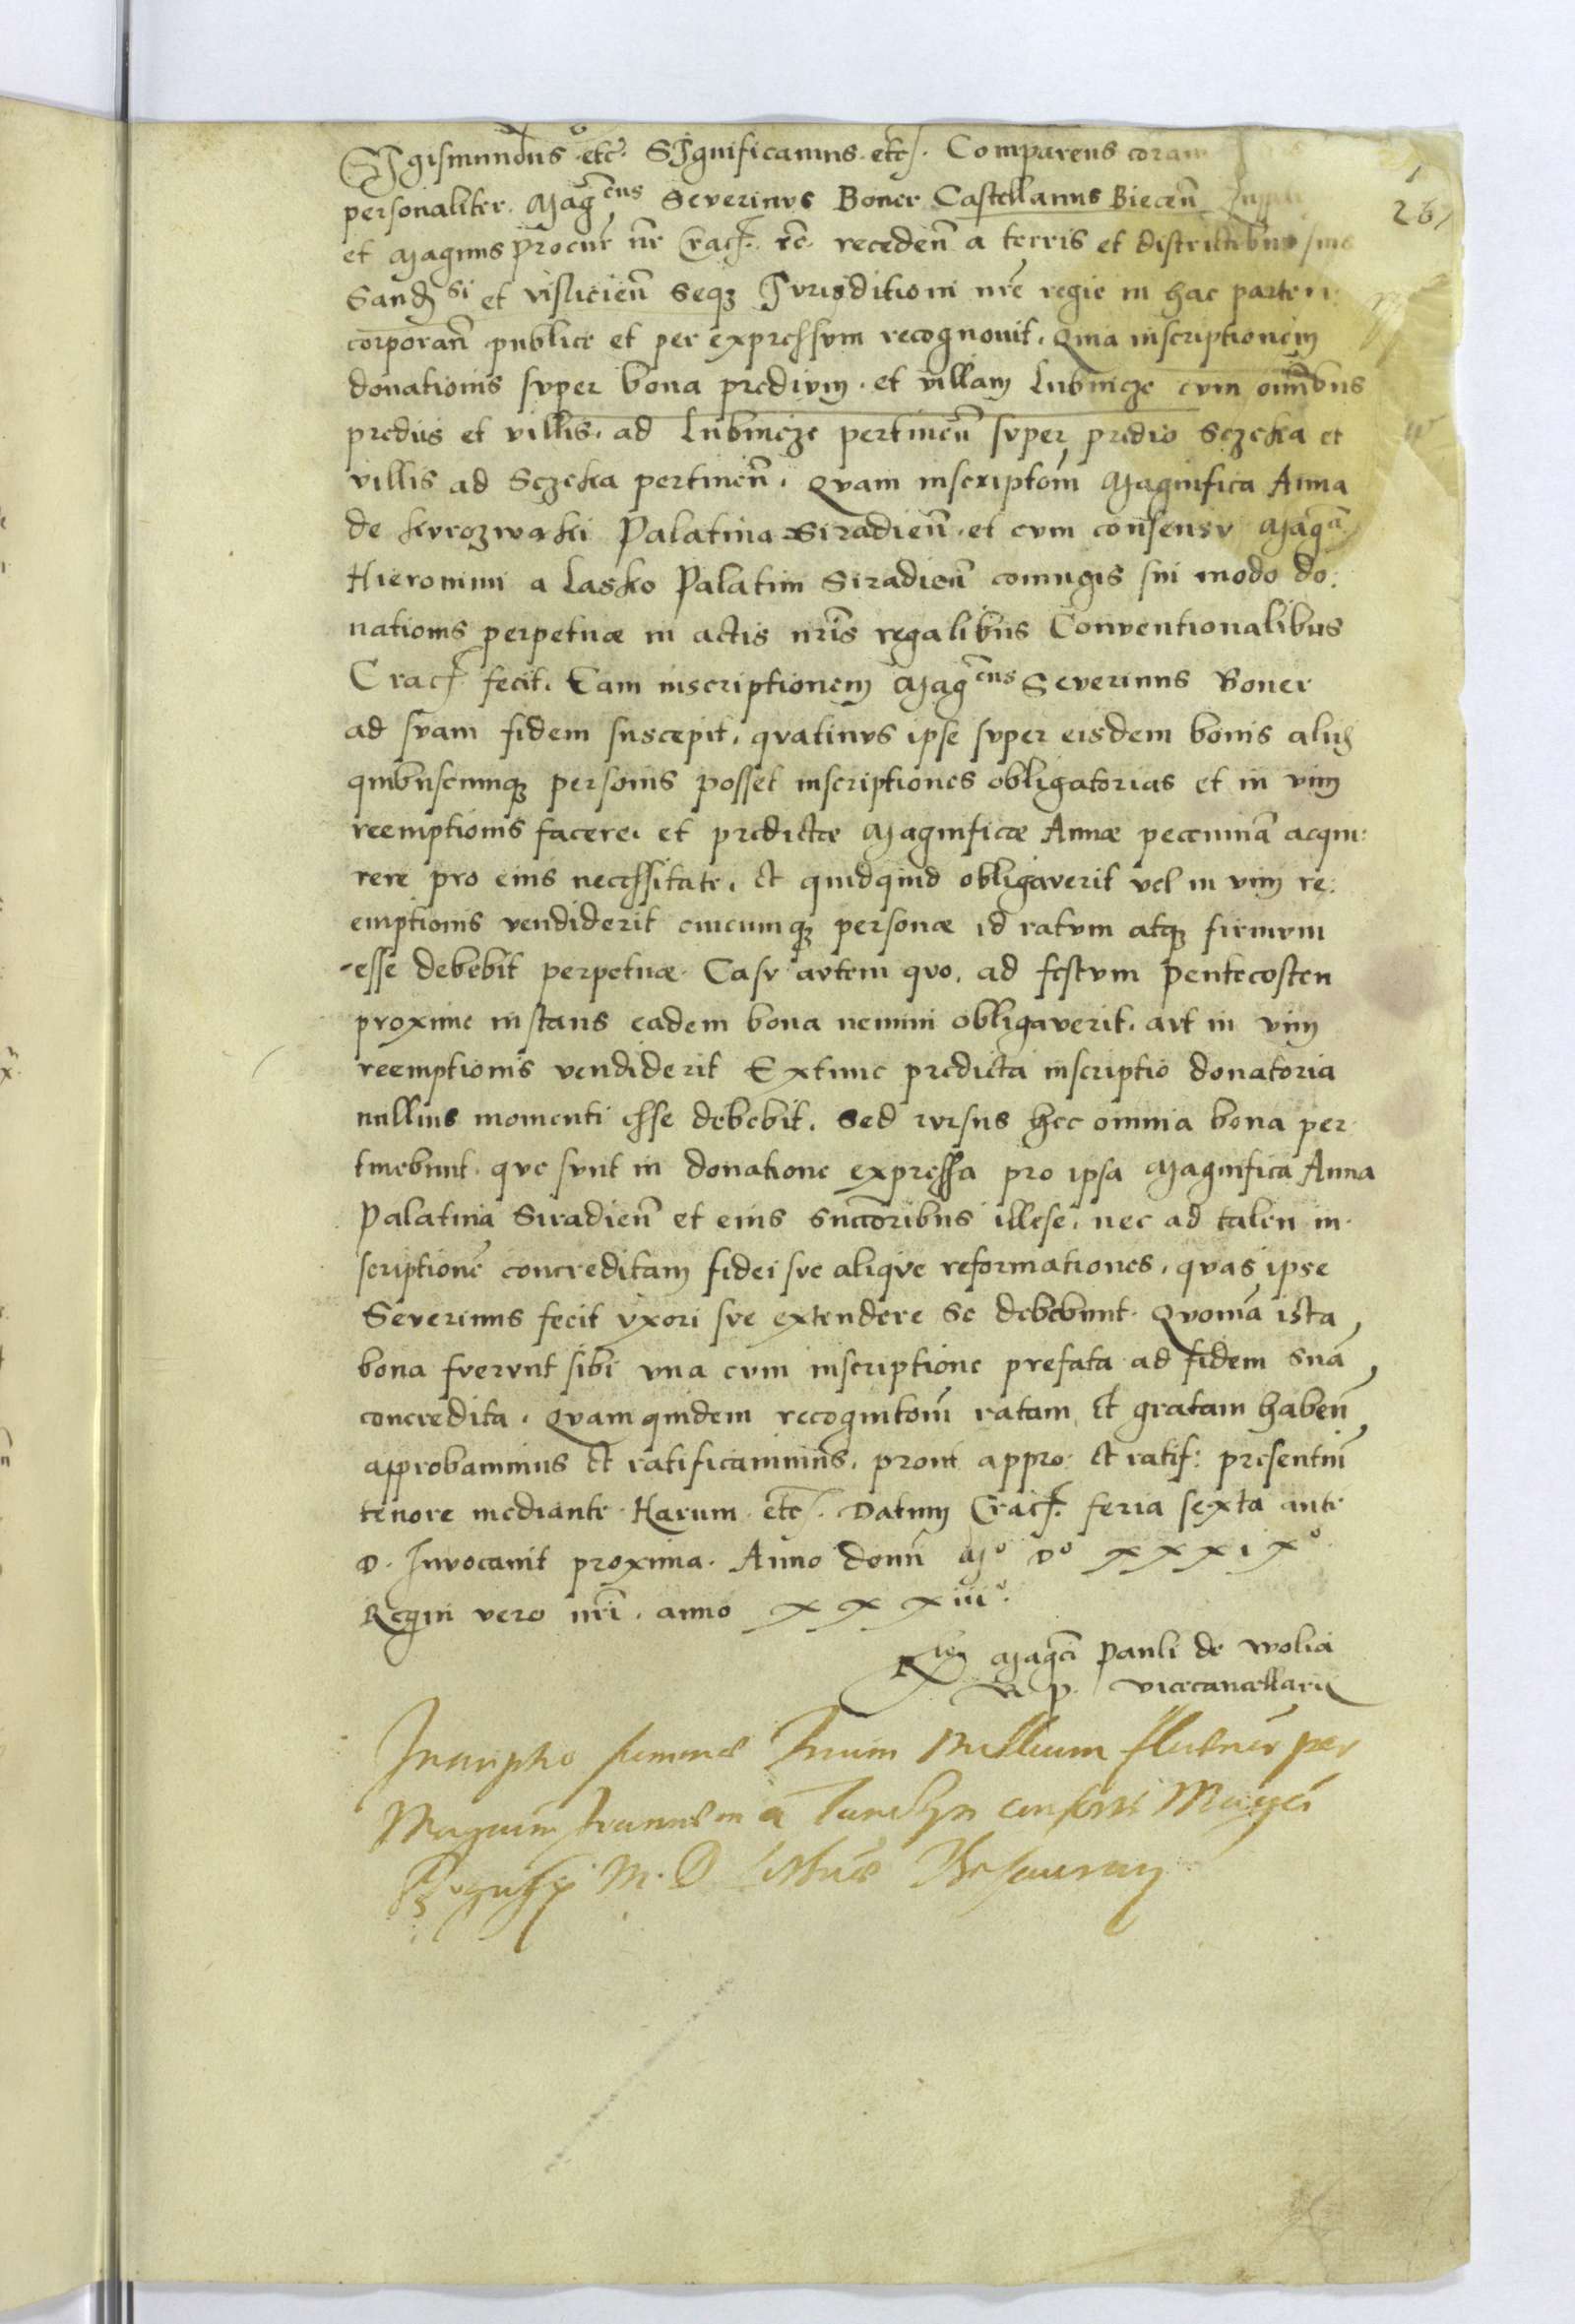 Sigismundus etc. Significamus etc. Comparens coram
personaliter Magcus Severinus Boner Castellanus Biecen̄
267
et Magnus procur nr̄ Crac. rc. receden̄ a terris et districtibus suis
Sandsi et vislicien̄ seqz Jurisditioni nrē regie in hac parte in:
corporan̄ publice et per expressum recognovit. Quia inscriptionem
donationis super bona predium et villam Lubnicze cum oīmbus
prediis et villis, ad Lubnicze pertinen̄ super predio Sczeka et
villis ad Sczeka pertinen̄. Quam inscriptōm Magnifica Anna
de kurozwaki Palatina Siradien̄. et cum consensu Magci
Hieronimi a Lasko Palatini Siradien̄ coniugis sui modo do:
nationis perpetuæ in actis nris regalibus Conventionalibus
Crac. fecit. Eam inscriptionem Magcus Severinus Boner
ad suam fidem suscepit. quatinus ipse super eisdem bonis aliis
quibuscumqz personis posset inscriptiones obligatorias et in vim
reemptionis facere. et predictæ Magnificæ Annæ pecuniā acqui:
rere pro eius necessitate. et quidquid obligaverit vel in vim re:
emptionis vendiderit cuicumqz personæ id ratum atqz firmum
esse debebit perpetuæ. Casu autem quo. ad festum Pentecosten
proxime instans eadem bona nemini obligaverit. aut in vim
reemptionis vendiderit Extunc predicta inscriptio donatoria
nullius momenti esse debebit. Sed rursus hec omnia bona per
tinebunt. que sunt in donatione expressa pro ipsa Magnifica Anna
Palatina Siradien̄ et eius succoribus illese. nec ad talem in
scriptionē concreditam fidei sue alique reformationes. quas ipse
Severinus fecit uxori sue extendere se debebunt. Quoniā ista
bona fuerunt sibi una cum inscriptione prefata ad fidem suā
concredita. Quam quidem recognitōm ratam et gratam haben̄
approbamimus et ratificamimus. prout appro: et ratif: presentiu̅
tenore mediante. Harum etc. Datum Crac. feria sexta ante
D. Invocavit proxima. Anno domi Mo Do xxxixo.
Regni vero nrī. anno xxxiiio.
Rlo Magci Pauli de wolia
R. p. vicecancellarii
summæ Millium per
a Magci
M. D.